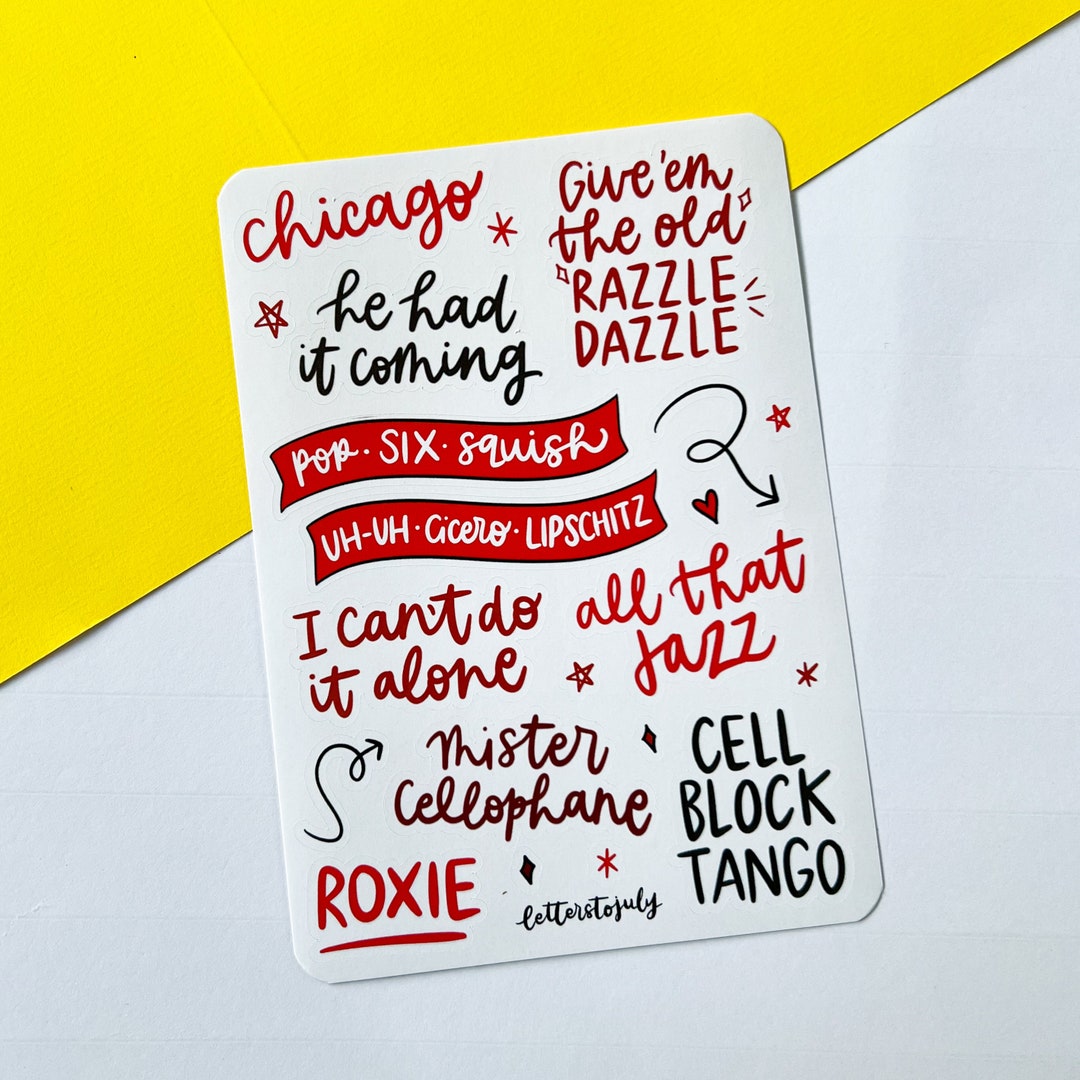 chicago
he had
it coming
Give 'em
the old
RAZZLE
DAZZLE
pop · SIX · squish
UH-UH · Cicero · LIPSCHITZ
I can't do
it alone
all that
jazz
Mister
Cellophane
CELL
BLOCK
TANGO
ROXIE
letterstojuly